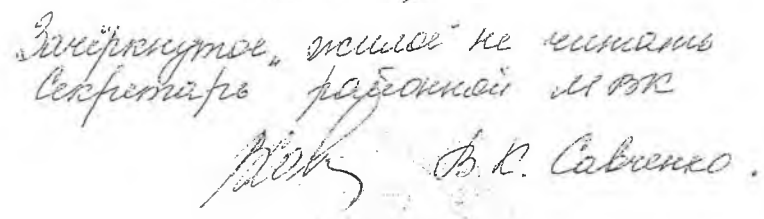 Зачёркнутое „ жилой не читать
Секретарь районной МВК
В.К. Савченко.